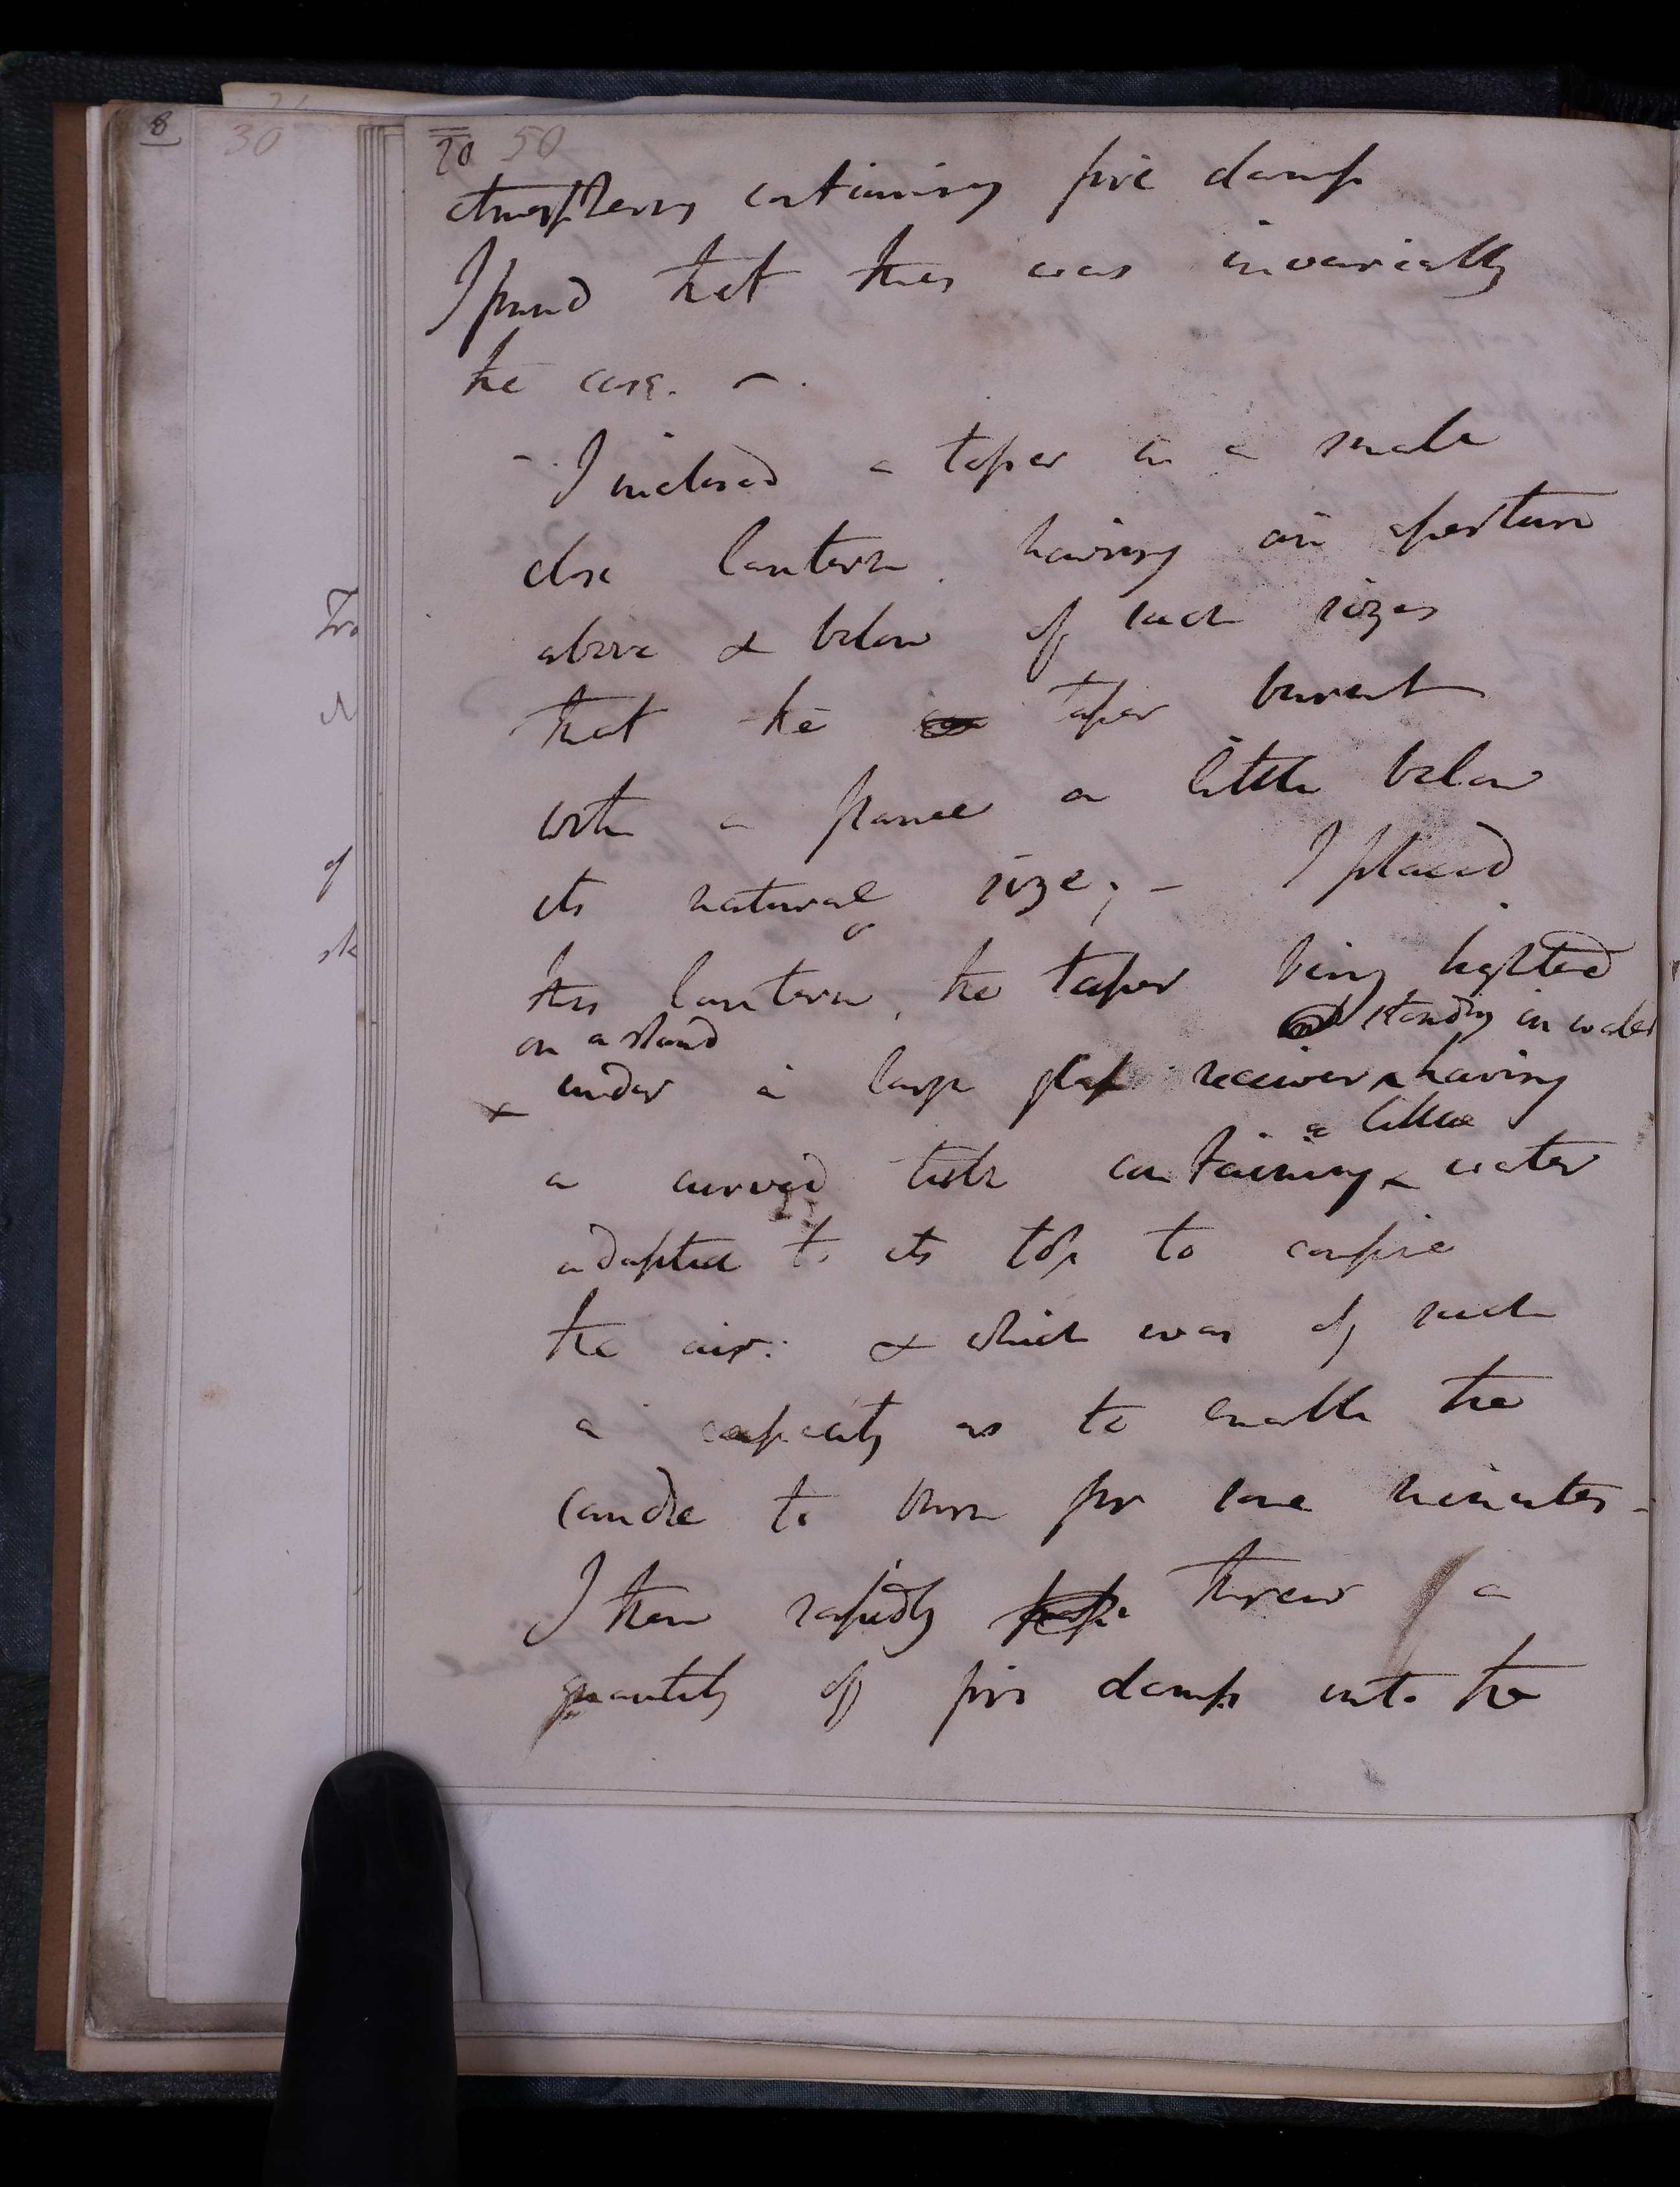 8
30
20 50
atmospheres containing fire damp
I found that this was invariably
the case. —.
- I inclosed a taper in a small
close lantern having an aperture
above & below of such sizes
that the taper burnt
with a flame a little below
its natural size; — I placed
this lantern, the taper being lighted
on a stand standing in water
under a large glass receiver ^ having
a little
a curved tube containing ^ water
adapted to its top to confine
the air: & which was of such
a capacity as to enable the
candle to burn for some minutes -
I then rapidly threw a
quantity of fire damp into the
Tra
of